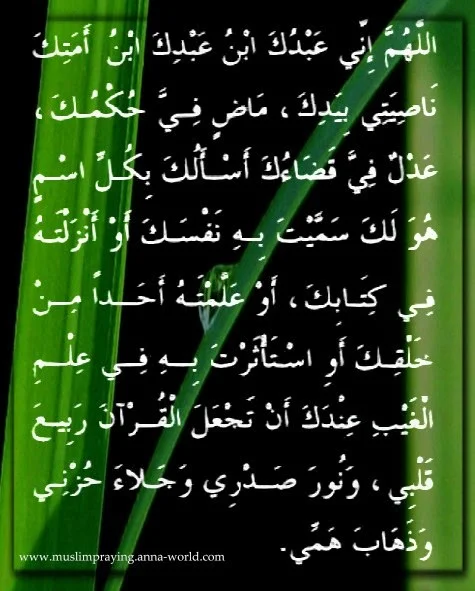 اللَّهُمَّ إِنِّي عَبْدُكَ ابْنُ عَبْدِكَ ابْنُ أَمَتِكَ
نَاصِيَتِي بِيَدِكَ، مَاضٍ فِيَّ حُكْمُكَ،
عَدْلٌ فِيَّ قَضَاءُكَ أَسْأَلُكَ بِكُلِّ اسْمٍ
هُوَ لَكَ سَمَّيْتَ بِهِ نَفْسَكَ أَوْ أَنْزَلْتَهُ
فِي كِتَابِكَ، أَوْ عَلَّمْتَهُ أَحَداً مِنْ
خَلْقِكَ أَوِ اسْتَأْثَرْتَ بِهِ فِي عِلْمِ
الْغَيْبِ عِنْدَكَ أَنْ تَجْعَلَ الْقُرْآنَ رَبِيعَ
قَلْبِي، وَنُورَ صَدْرِي وَجَلَاءَ حُزْنِي
وَذَهَابَ هَمِّي.
www.muslimpraying.anna-world.com